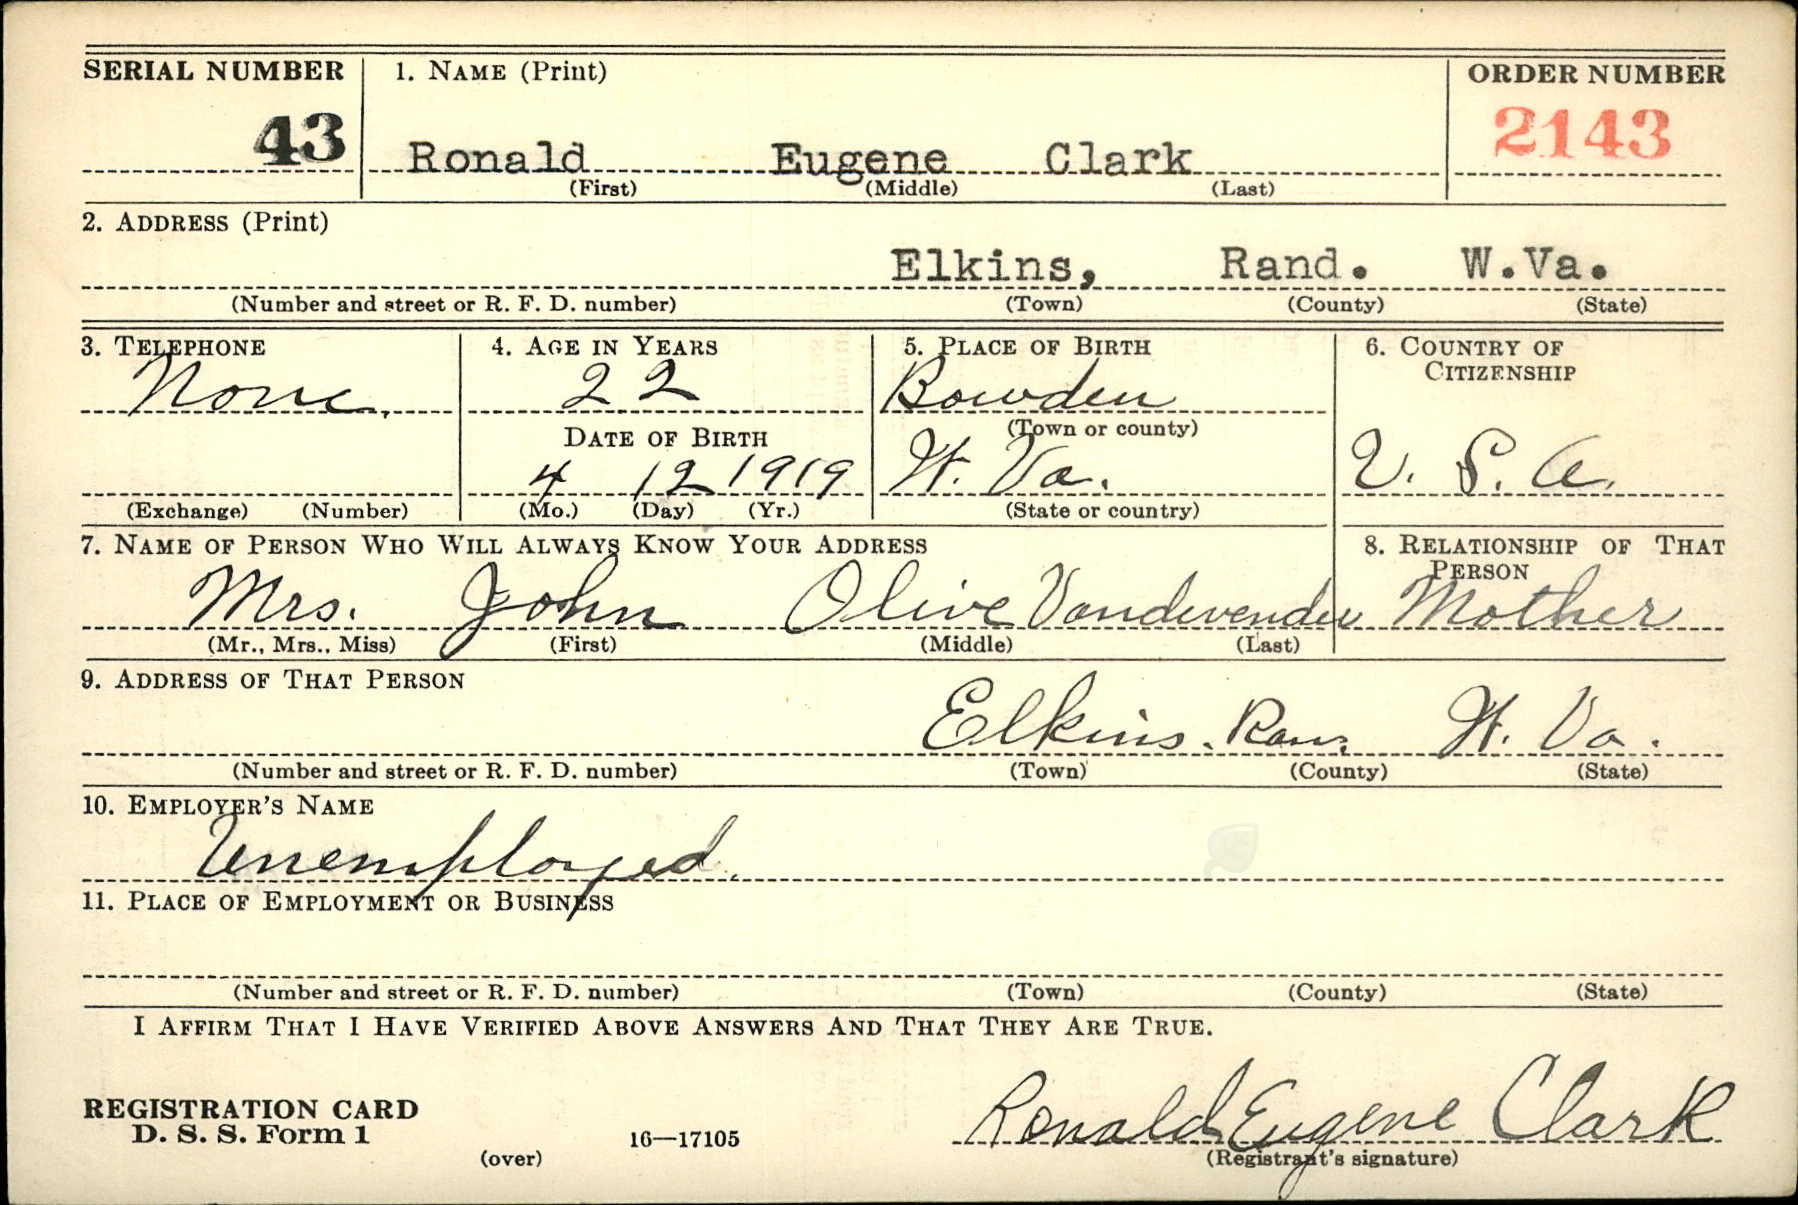 SERIAL NUMBER 1. NAME (Print) ORDER NUMBER
43 Ronald Eugene Clark 2143
(First) (Middle) (Last)
2. ADDRESS (Print)
Elkins, Rand. W.Va.
(Number and street or R. F. D. number) (Town) (County) (State)
3. TELEPHONE 4. AGE IN YEARS 5. PLACE OF BIRTH 6. COUNTRY OF CITIZENSHIP
None. 22 Bowden
DATE OF BIRTH (Town or county)
4 12 1919 W. Va. U. S. A.
(Exchange) (Number) (Mo.) (Day) (Yr.) (State or country)
7. NAME OF PERSON WHO WILL ALWAYS KNOW YOUR ADDRESS 8. RELATIONSHIP OF THAT PERSON
Mrs. John Olive Vandevender Mother
(Mr., Mrs., Miss) (First) (Middle) (Last)
9. ADDRESS OF THAT PERSON
Elkins. Ran. W. Va.
(Number and street or R. F. D. number) (Town) (County) (State)
10. EMPLOYER'S NAME
Unemployed.
11. PLACE OF EMPLOYMENT OR BUSINESS
(Number and street or R. F. D. number) (Town) (County) (State)
I AFFIRM THAT I HAVE VERIFIED ABOVE ANSWERS AND THAT THEY ARE TRUE.
REGISTRATION CARD
D. S. S. Form 1 16—17105 Ronald Eugene Clark
(over) (Registrant's signature)